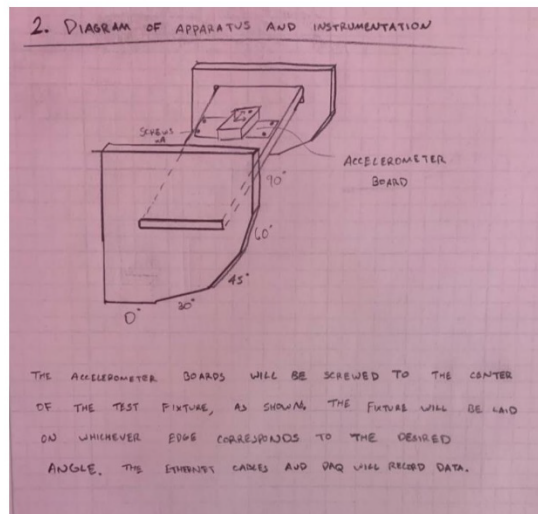 2. DIAGRAM OF APPARATUS AND INSTRUMENTATION
SCREWS
x4
ACCELEROMETER
BOARD
90°
60°
45°
30°
0°
THE ACCELEROMETER BOARDS WILL BE SCREWED TO THE CENTER
OF THE TEST FIXTURE, AS SHOWN. THE FIXTURE WILL BE LAID
ON WHICHEVER EDGE CORRESPONDS TO THE DESIRED
ANGLE. THE ETHERNET CABLES AND DAQ WILL RECORD DATA.